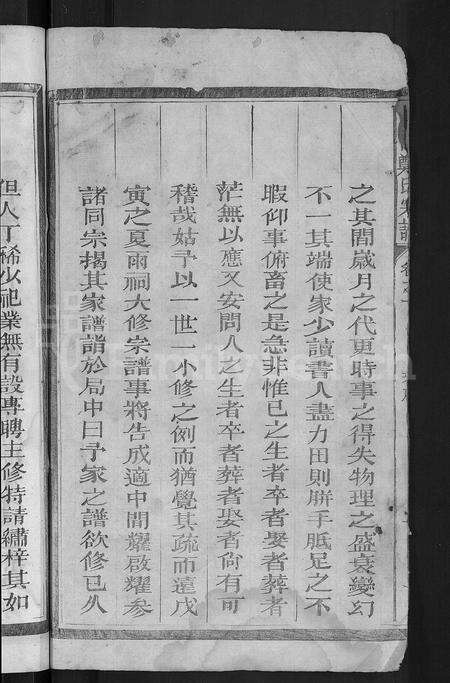 鄭氏宗譜
之其間歲月之代更時事之得失物理之盛衰變幻
不一其端使家少讀書人盡力田則胼手胝足之不
暇仰事俯畜之是急非惟已之生者卒者娶者葬者
茫無以應又安問人之生者卒者葬者娶者尙有可
稽哉姑予以一世一小修之例而猶覺其疏而遠戊
寅之夏雨祠大修宗譜事將告成適中間耀啟耀參
諸同宗揭其家譜詣於局中曰予家之譜欲修已久
但人丁稀少祀業無有設專聘主修特請繡梓其如